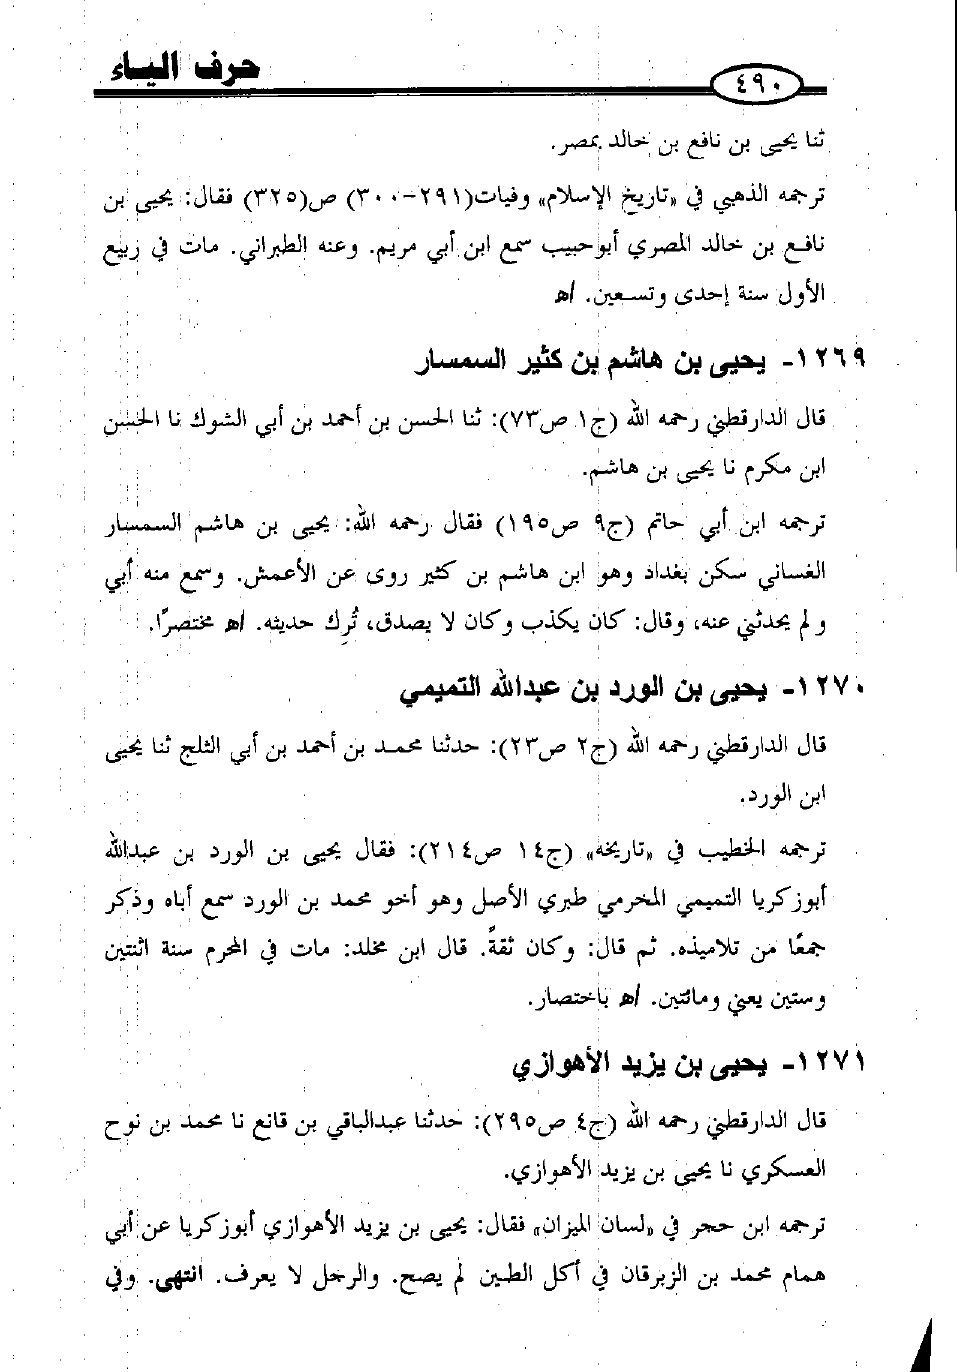 حرف الياء
٤٩٠
ثنا يحيى بن نافع بن خالد بمصر.
ترجمه الذهبي في «تاريخ الإسلام» وفيات(٢٩١-٣٠٠) ص(٣٢٥) فقال: يحيى بن
نافع بن خالد المصري أبوحبيب سمع ابن أبي مريم. وعنه الطبراني. مات في ربيع
الأول سنة إحدى وتسعين. اﻫ
١٢٦٩- يحيى بن هاشم بن كثير السمسار
قال الدارقطني رحمه الله (ج١ ص٧٣): ثنا الحسن بن أحمد بن أبي الشوك نا الحسن
ابن مكرم نا يحيى بن هاشم.
ترجمه ابن أبي حاتم (ج٩ ص١٩٥) فقال رحمه الله: يحيى بن هاشم السمسار
الغساني سكن بغداد وهو ابن هاشم بن كثير روى عن الأعمش. وسمع منه أبي
ولم يحدثني عنه، وقال: كان يكذب وكان لا يصدق، تُرك حديثه. اﻫ مختصرًا.
١٢٧٠- يحيى بن الورد بن عبدالله التميمي
قال الدارقطني رحمه الله (ج٢ ص٢٣): حدثنا محمد بن أحمد بن أبي الثلج ثنا يحيى
ابن الورد.
ترجمه الخطيب في «تاريخه» (ج١٤ ص٢١٤): فقال يحيى بن الورد بن عبدالله
أبوزكريا التميمي المخرمي طبري الأصل وهو أخو محمد بن الورد سمع أباه وذكر
جمعًا من تلاميذه. ثم قال: وكان ثقةً. قال ابن مخلد: مات في المحرم سنة اثنتين
وستين يعني ومائتين. اﻫ باختصار.
١٢٧١- يحيى بن يزيد الأهوازي
قال الدارقطني رحمه الله (ج٤ ص٢٩٥): حدثنا عبدالباقي بن قانع نا محمد بن نوح
العسكري نا يحيى بن يزيد الأهوازي.
ترجمه ابن حجر في «لسان الميزان» فقال: يحيى بن يزيد الأهوازي أبوزكريا عن أبي
همام محمد بن الزبرقان في أكل الطين لم يصح. والرجل لا يعرف. انتهى. وفي